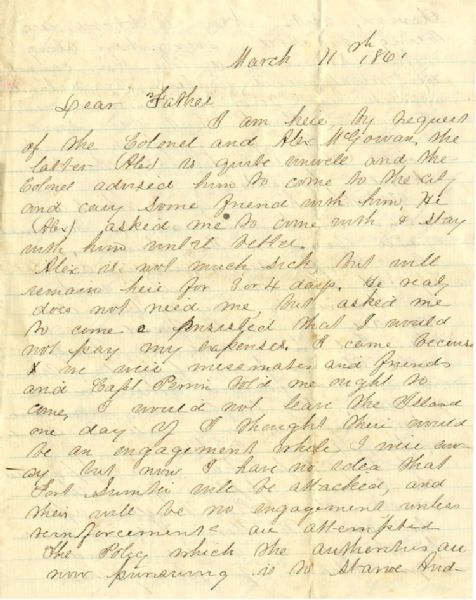 March 11th 1861
Dear Father
I am heir by request
of the Colonel and Alex McGowan, the
latter (Alex) is quite unwell and the
Colonel advised him to come to the city
and cary some friend with him, He
(Alex) asked me to come with & stay
with him until better.
Alex is not much sick but will
remain heir for 3 or 4 days. He realy
does not need me, but asked me
to come & insisted that I would
not pay my expenses. I came because
we were messmates and friends
and Capt Perrin told me ought to
come, I would not leave the Island
one day if I thought their would
be an engagement while I were aw-
ay but now I have no idea that
Fort Sumter will be attacked, and
their will be no engagement unless
reinforcements are attempted
The Policy which the authorities are
now pursuing is to starve And-